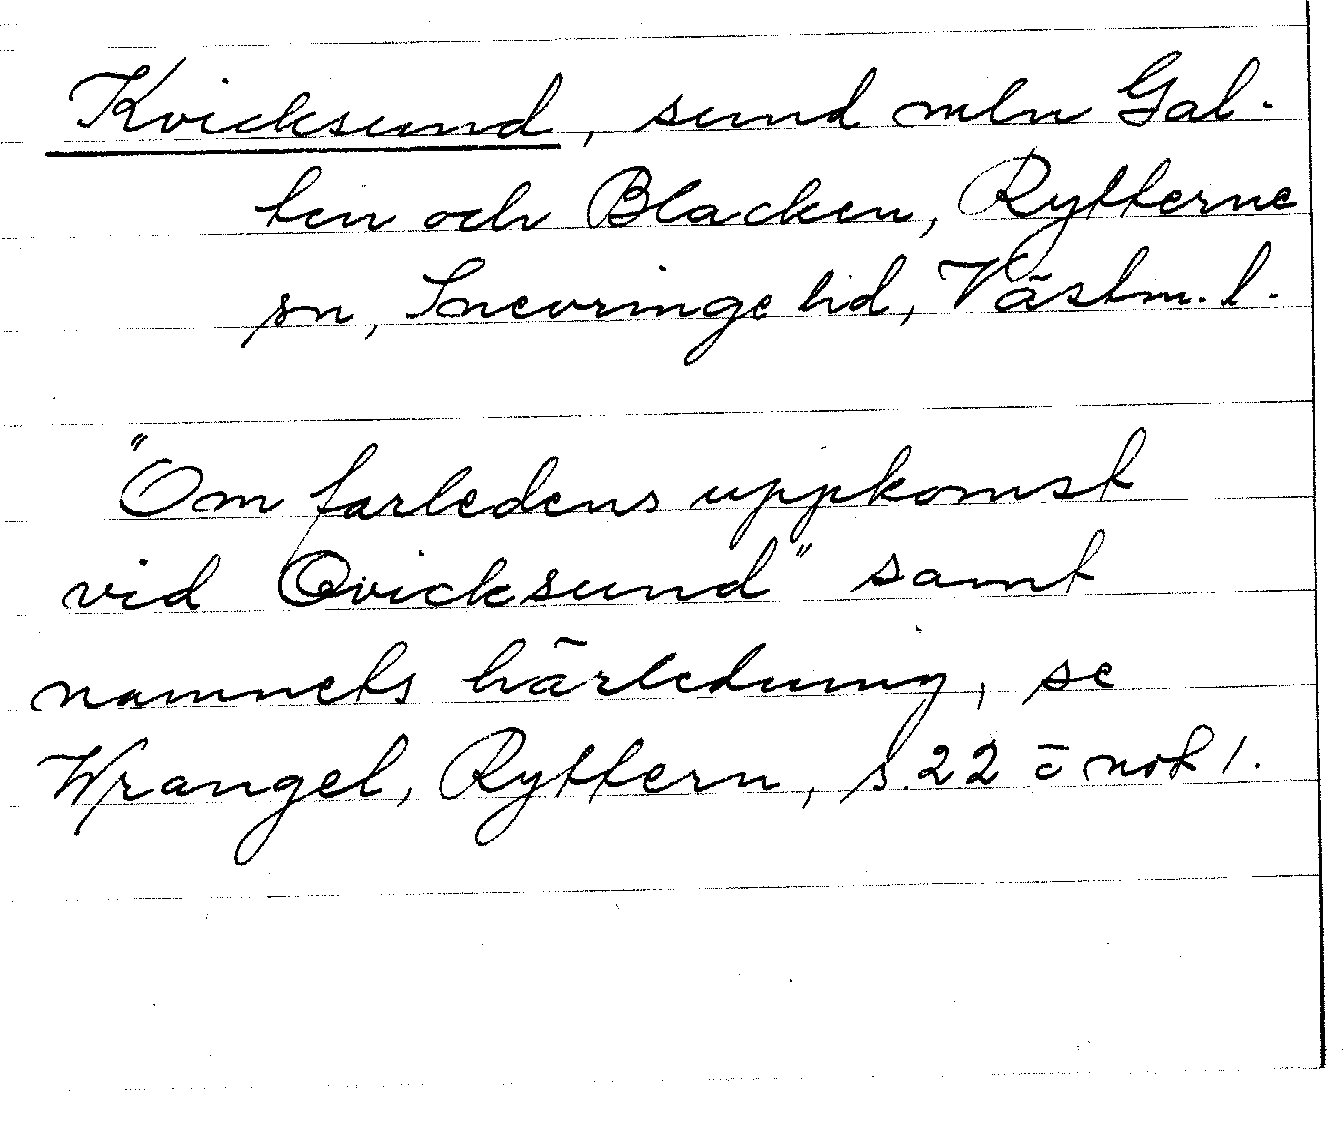 Kvicksund, sund mln Gal-
ten och Blacken, Rytterne
sn, Snevringe hd, Västm. l.
"Om farledens uppkomst
vid Qvicksund" samt
namnets härledning, se
Wrangel, Ryttern, s. 22 o not 1.